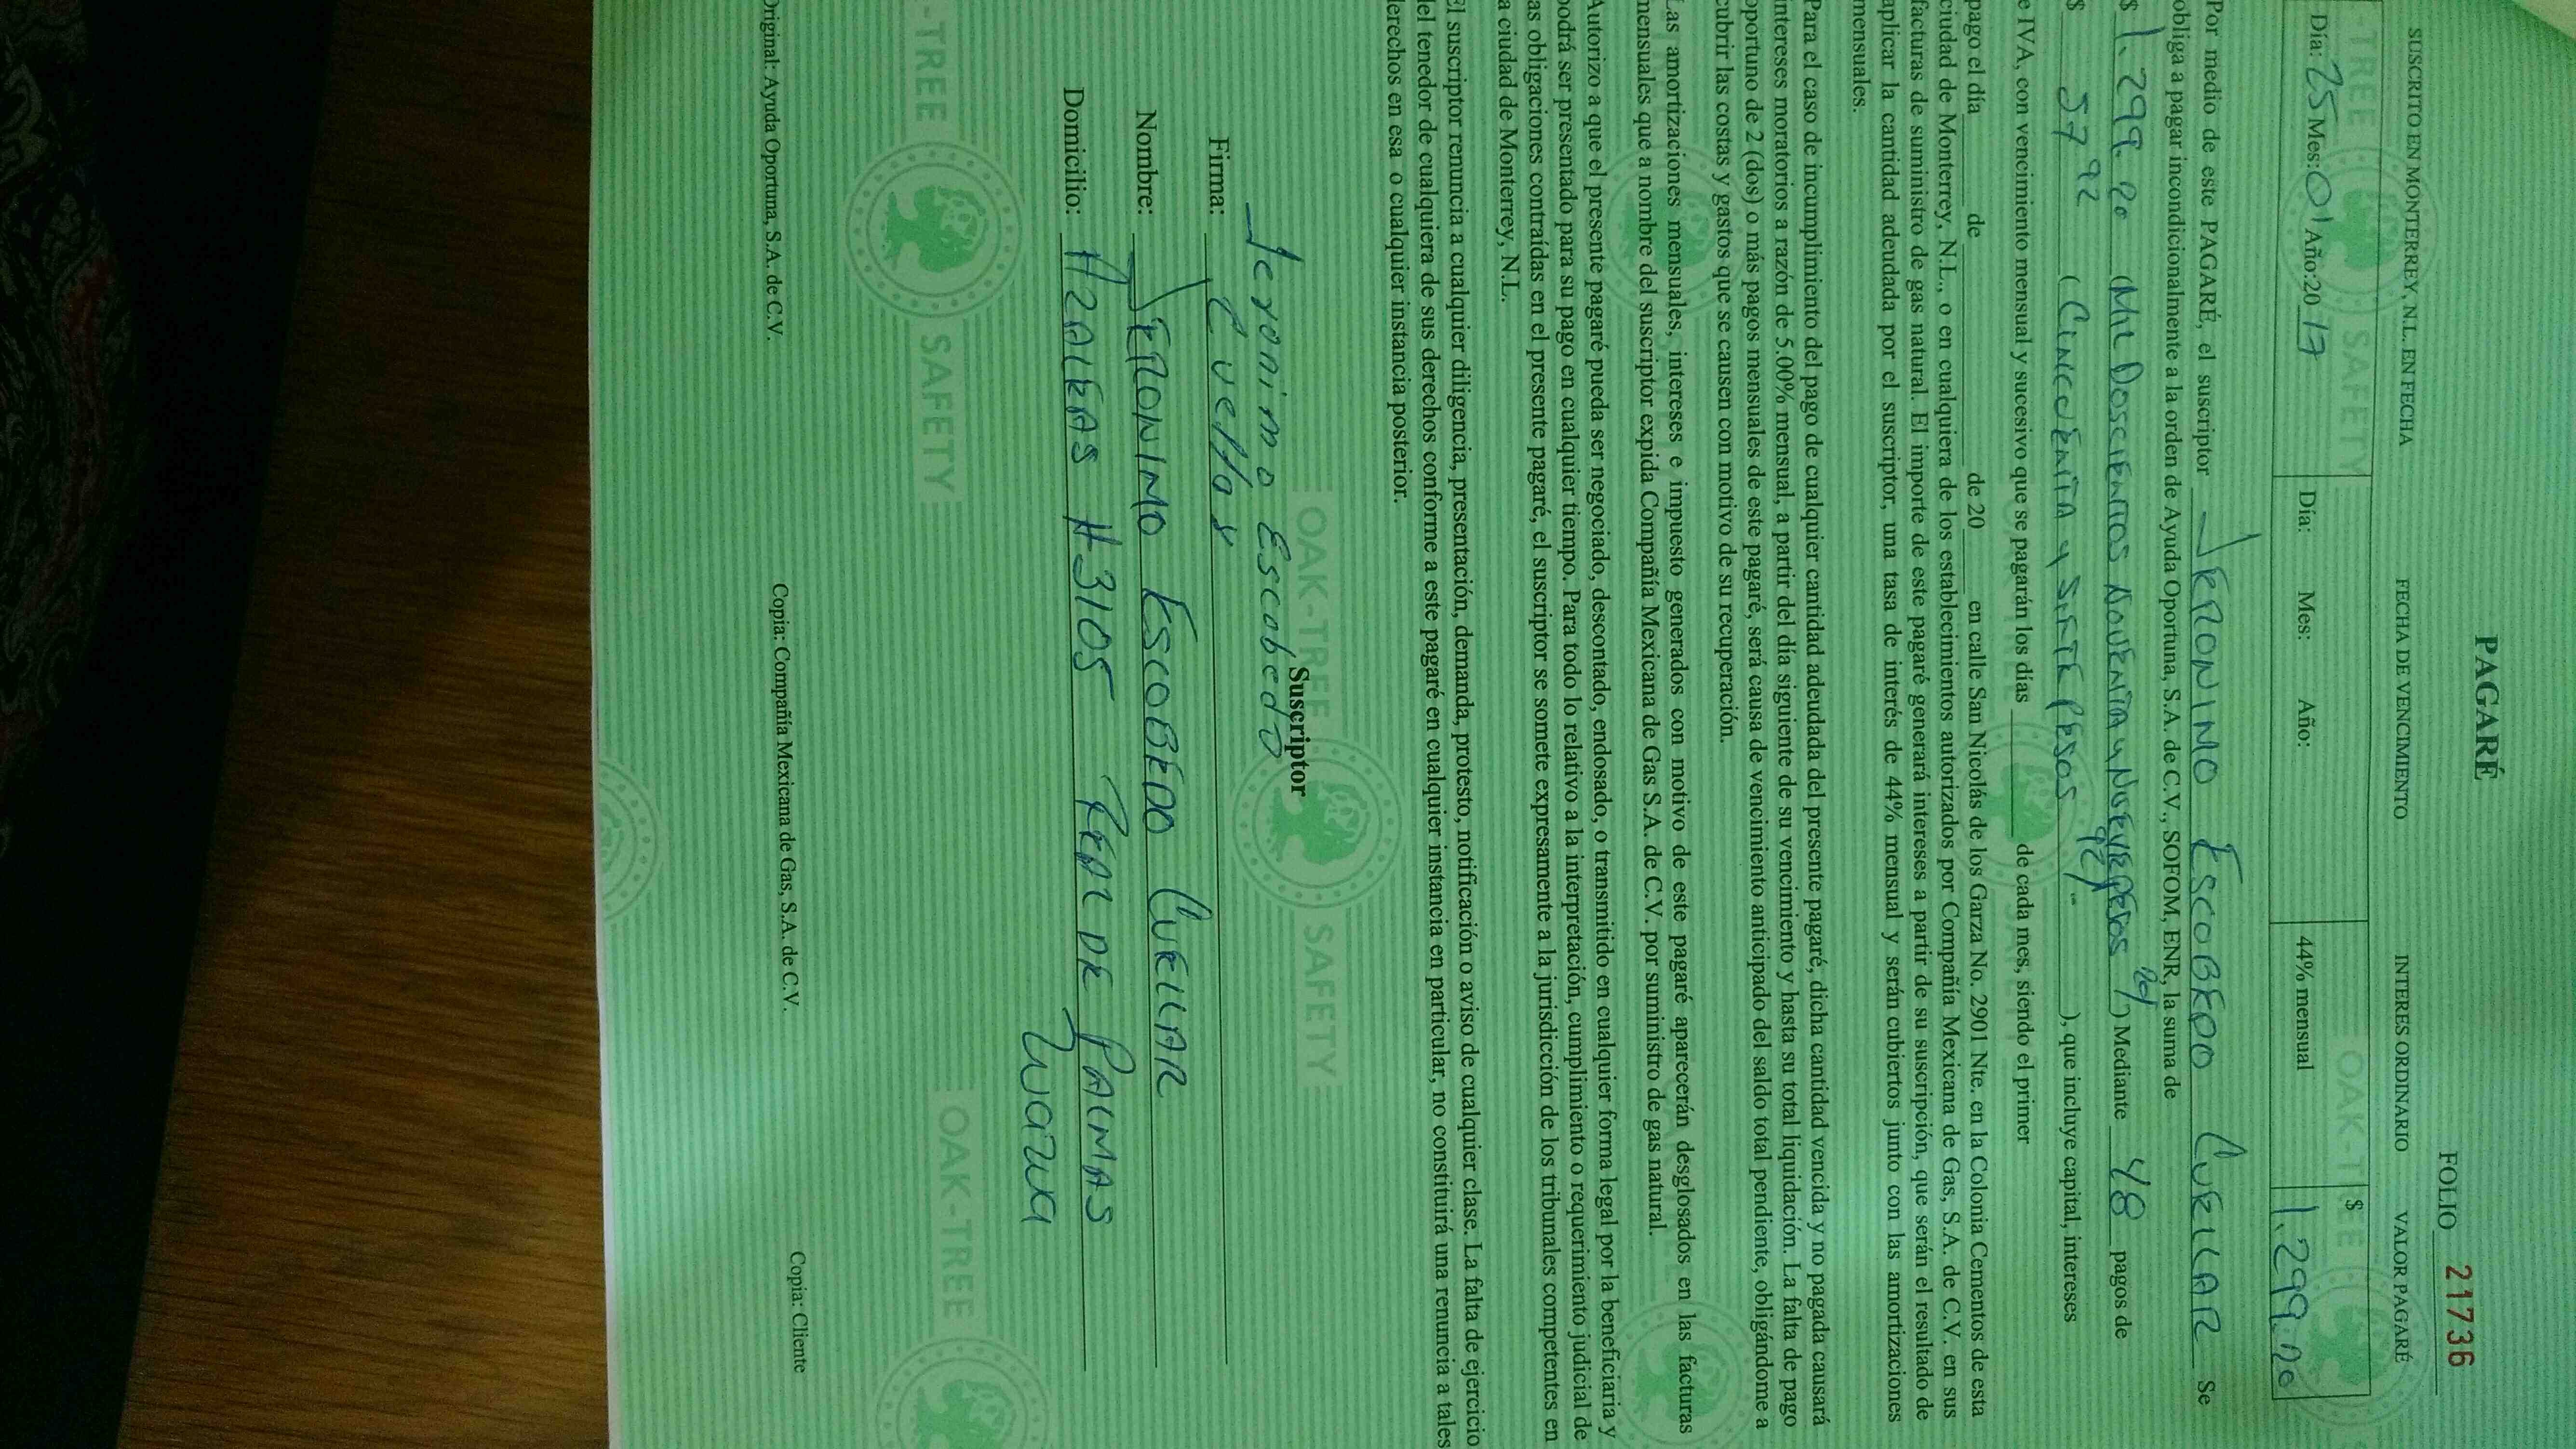 PAGARÉ
FOLIO 21736
SUSCRITO EN MONTERREY, N.L. EN FECHA FECHA DE VENCIMIENTO INTERES ORDINARIO VALOR PAGARÉ
Día: 25 Mes: 01 Año:20 17 Día: Mes: Año: 44% mensual $ 1,299.20
Por medio de este PAGARÉ, el suscriptor JERONIMO ESCOBEDO CUELLAR Se
obliga a pagar incondicionalmente a la orden de Ayuda Oportuna, S.A. de C.V., SOFOM, ENR, la suma de
$ 1,299.20 (Mil Doscientos Noventa y Nueve pesos 20/) Mediante 48 pagos de
$ 57 92 (Cincuenta y Siete pesos 92/..), que incluye capital, intereses
e IVA, con vencimiento mensual y sucesivo que se pagarán los días de cada mes, siendo el primer
pago el día de de 20 en calle San Nicolás de los Garza No. 2901 Nte. en la Colonia Cementos de esta
ciudad de Monterrey, N.L., o en cualquiera de los establecimientos autorizados por Compañía Mexicana de Gas, S.A. de C.V. en sus
facturas de suministro de gas natural. El importe de este pagaré generará intereses a partir de su suscripción, que serán el resultado de
aplicar la cantidad adeudada por el suscriptor, una tasa de interés de 44% mensual y serán cubiertos junto con las amortizaciones
mensuales.
Para el caso de incumplimiento del pago de cualquier cantidad adeudada del presente pagaré, dicha cantidad vencida y no pagada causará
intereses moratorios a razón de 5.00% mensual, a partir del día siguiente de su vencimiento y hasta su total liquidación. La falta de pago
oportuno de 2 (dos) o más pagos mensuales de este pagaré, será causa de vencimiento anticipado del saldo total pendiente, obligándome a
cubrir las costas y gastos que se causen con motivo de su recuperación.
Las amortizaciones mensuales, intereses e impuesto generados con motivo de este pagaré aparecerán desglosados en las facturas
mensuales que a nombre del suscriptor expida Compañía Mexicana de Gas S.A. de C.V. por suministro de gas natural.
Autorizo a que el presente pagaré pueda ser negociado, descontado, endosado, o transmitido en cualquier forma legal por la beneficiaria y
podrá ser presentado para su pago en cualquier tiempo. Para todo lo relativo a la interpretación, cumplimiento o requerimiento judicial de
as obligaciones contraídas en el presente pagaré, el suscriptor se somete expresamente a la jurisdicción de los tribunales competentes en
a ciudad de Monterrey, N.L.
El suscriptor renuncia a cualquier diligencia, presentación, demanda, protesto, notificación o aviso de cualquier clase. La falta de ejercicio
del tenedor de cualquiera de sus derechos conforme a este pagaré en cualquier instancia en particular, no constituirá una renuncia a tales
derechos en esa o cualquier instancia posterior.
Suscriptor
Jeronimo Escobedo
Firma: Cuellar
Nombre: JERONIMO ESCOBEDO CUELLAR
Domicilio: AZALEAS #3105 REAL DE PALMAS
Zuazua
OAK-TREE SAFETY
Original: Ayuda Oportuna, S.A. de C.V. Copia: Compañía Mexicana de Gas, S.A. de C.V. Copia: Cliente